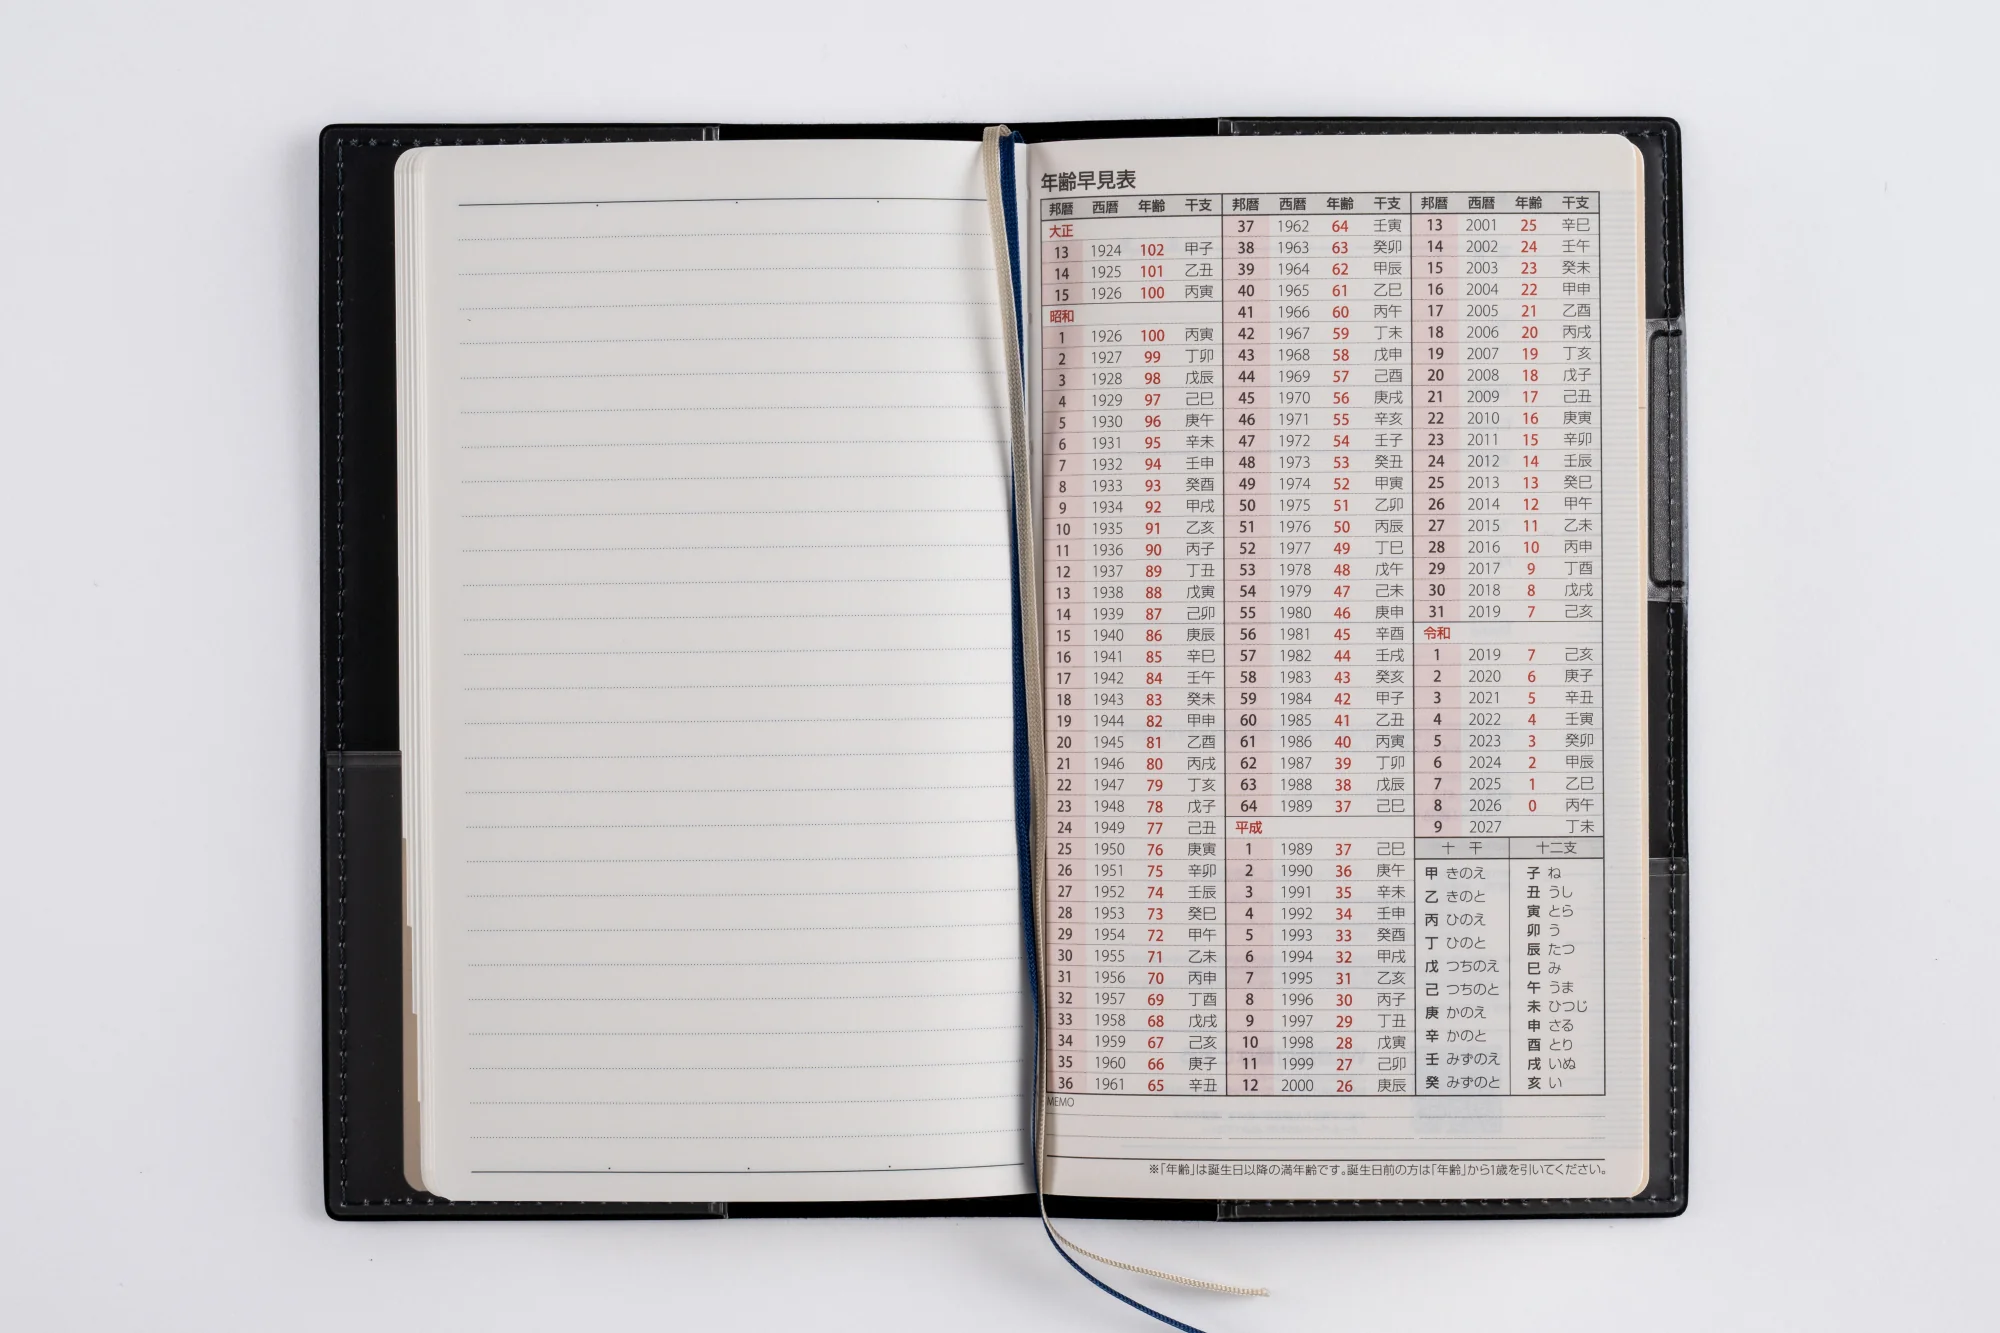 年齢早見表
邦暦 西暦 年齢 干支
大正
13 1924 102 甲子
14 1925 101 乙丑
15 1926 100 丙寅
昭和
1 1926 100 丙寅
2 1927 99 丁卯
3 1928 98 戊辰
4 1929 97 己巳
5 1930 96 庚午
6 1931 95 辛未
7 1932 94 壬申
8 1933 93 癸酉
9 1934 92 甲戌
10 1935 91 乙亥
11 1936 90 丙子
12 1937 89 丁丑
13 1938 88 戊寅
14 1939 87 己卯
15 1940 86 庚辰
16 1941 85 辛巳
17 1942 84 壬午
18 1943 83 癸未
19 1944 82 甲申
20 1945 81 乙酉
21 1946 80 丙戌
22 1947 79 丁亥
23 1948 78 戊子
24 1949 77 己丑
25 1950 76 庚寅
26 1951 75 辛卯
27 1952 74 壬辰
28 1953 73 癸巳
29 1954 72 甲午
30 1955 71 乙未
31 1956 70 丙申
32 1957 69 丁酉
33 1958 68 戊戌
34 1959 67 己亥
35 1960 66 庚子
36 1961 65 辛丑
邦暦 西暦 年齢 干支
37 1962 64 壬寅
38 1963 63 癸卯
39 1964 62 甲辰
40 1965 61 乙巳
41 1966 60 丙午
42 1967 59 丁未
43 1968 58 戊申
44 1969 57 己酉
45 1970 56 庚戌
46 1971 55 辛亥
47 1972 54 壬子
48 1973 53 癸丑
49 1974 52 甲寅
50 1975 51 乙卯
51 1976 50 丙辰
52 1977 49 丁巳
53 1978 48 戊午
54 1979 47 己未
55 1980 46 庚申
56 1981 45 辛酉
57 1982 44 壬戌
58 1983 43 癸亥
59 1984 42 甲子
60 1985 41 乙丑
61 1986 40 丙寅
62 1987 39 丁卯
63 1988 38 戊辰
64 1989 37 己巳
平成
1 1989 37 己巳
2 1990 36 庚午
3 1991 35 辛未
4 1992 34 壬申
5 1993 33 癸酉
6 1994 32 甲戌
7 1995 31 乙亥
8 1996 30 丙子
9 1997 29 丁丑
10 1998 28 戊寅
11 1999 27 己卯
12 2000 26 庚辰
邦暦 西暦 年齢 干支
13 2001 25 辛巳
14 2002 24 壬午
15 2003 23 癸未
16 2004 22 甲申
17 2005 21 乙酉
18 2006 20 丙戌
19 2007 19 丁亥
20 2008 18 戊子
21 2009 17 己丑
22 2010 16 庚寅
23 2011 15 辛卯
24 2012 14 壬辰
25 2013 13 癸巳
26 2014 12 甲午
27 2015 11 乙未
28 2016 10 丙申
29 2017 9 丁酉
30 2018 8 戊戌
31 2019 7 己亥
令和
1 2019 7 己亥
2 2020 6 庚子
3 2021 5 辛丑
4 2022 4 壬寅
5 2023 3 癸卯
6 2024 2 甲辰
7 2025 1 乙巳
8 2026 0 丙午
9 2027 丁未
十干
甲 きのえ
乙 きのと
丙 ひのえ
丁 ひのと
戊 つちのえ
己 つちのと
庚 かのえ
辛 かのと
壬 みずのえ
癸 みずのと
十二支
子 ね
丑 うし
寅 とら
卯 う
辰 たつ
巳 み
午 うま
未 ひつじ
申 さる
酉 とり
戌 いぬ
亥 い
MEMO
※「年齢」は誕生日以降の満年齢です。誕生日前の方は「年齢」から1歳を引いてください。